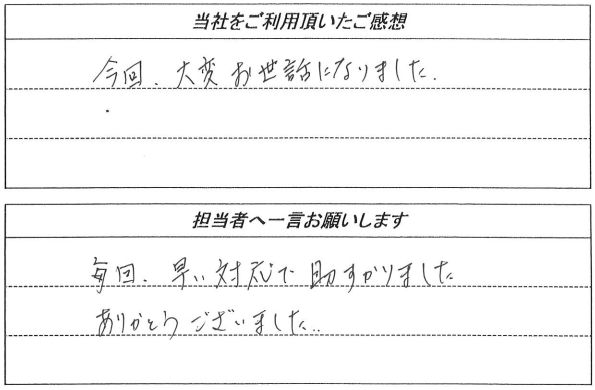 当社をご利用頂いたご感想
今回、大変お世話になりました.
担当者へ一言お願いします
毎回、早い対応で助すかりました
ありがとうございました..